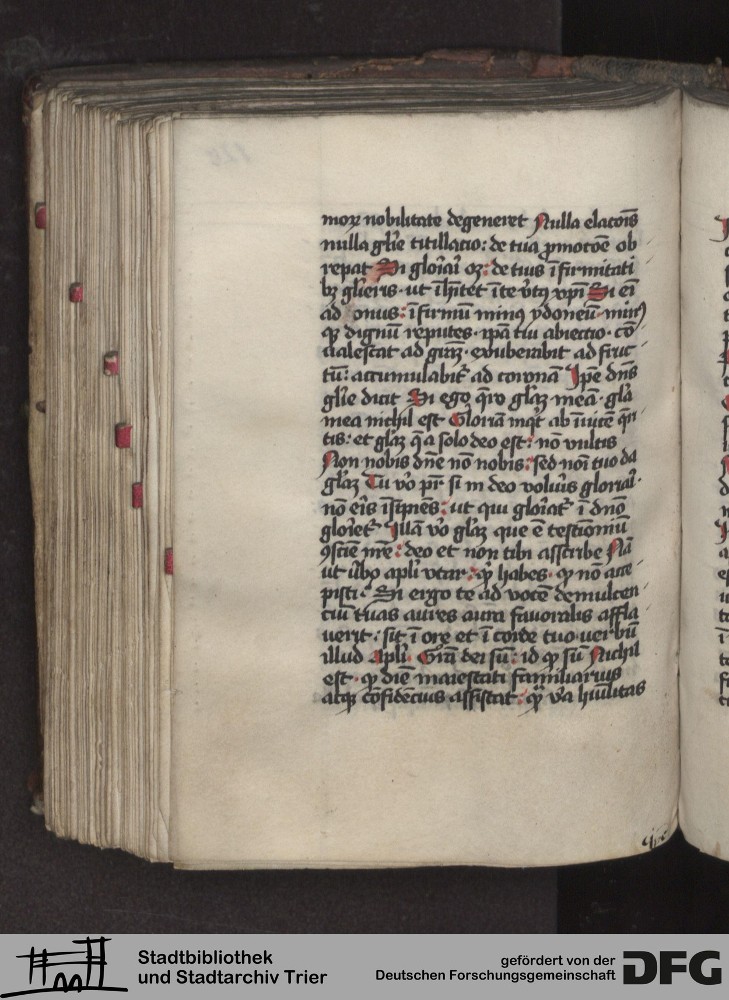 moꝝ nobilitate degeneret Nulla elacōis
nulla gl̄ie titillatio: de tua ꝓmotōe ob
repat Si gloriari oꝫ: de tuis īfirmitati
bꝫ gl̄ieris · ut īhītet īte v̄tꝰ xp̄i Si eī
ad onus: īfirmū minꝰ ydoneū · minꝰ
qꝫ dignū reputes · ip̄a tui abiectio · cō
ualescat ad · exuberabit ad fruc
tū: accumulabit᷑ ad coronā Ip̄e dn̄s
gl̄ie dicit Si ego q̄ro gl̄aꝫ meā · gl̄a
mea nichil est Gloriam inq̇t ab īuicē q̄ri
tis: et gl̄aꝫ q̄ a solo deo est: nō vultis
Non nobis dn̄e nō nobis: sed noī tuo da
gl̄aꝫ Tu v̄o pr̄ si in deo volueris gloriari ·
nō eris īsipiēs: ut qui gloriat᷑ ī dn̄o
gloriet᷑ Illā v̄o gl̄aꝫ que ē testīoniū
ꝯsciē nr̄e: deo et non tibi asscribe Nā
ut v̄bo apl̄i vtar: qͥd habes · qd̄ nō acce
pisti: Si ergo te ad votē demulcen
tiū tuas aures aura fauoralis affla
uerit: sit ī ore et ī corde tuo uerbū
illud apl̄i · Grā dei sū: id qd̄ sū Nichil
est · qd̄ diē maiestati familiarius
atqꝫ cōfidencius assistat: q̄ v̄a hūilitas
Stadtbibliothek
und Stadtarchiv Trier
gefördert von der
Deutschen Forschungsgemeinschaft
DFG